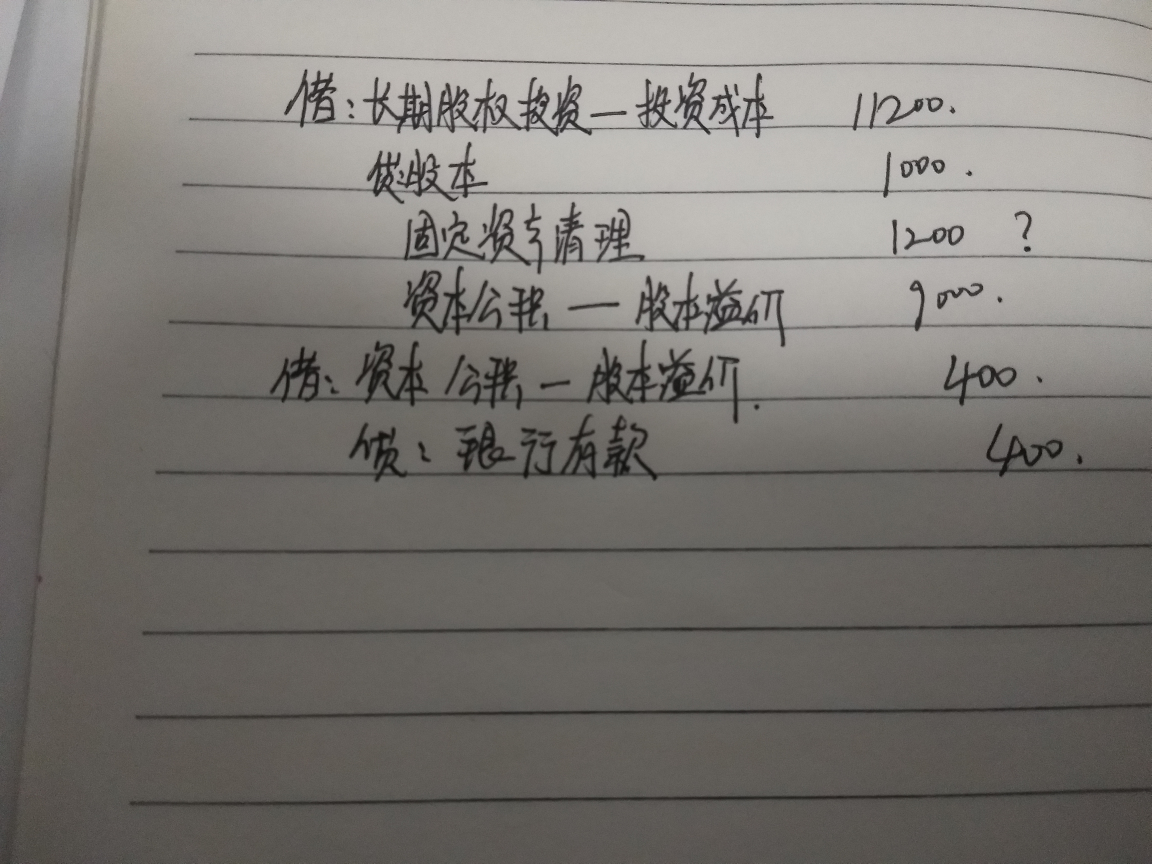 借：长期股权投资—投资成本 11200.
贷：股本 1000.
固定资产清理 1200 ?
资本公积 — 股本溢价 9000.
借：资本公积—股本溢价. 400.
贷：银行存款 400.